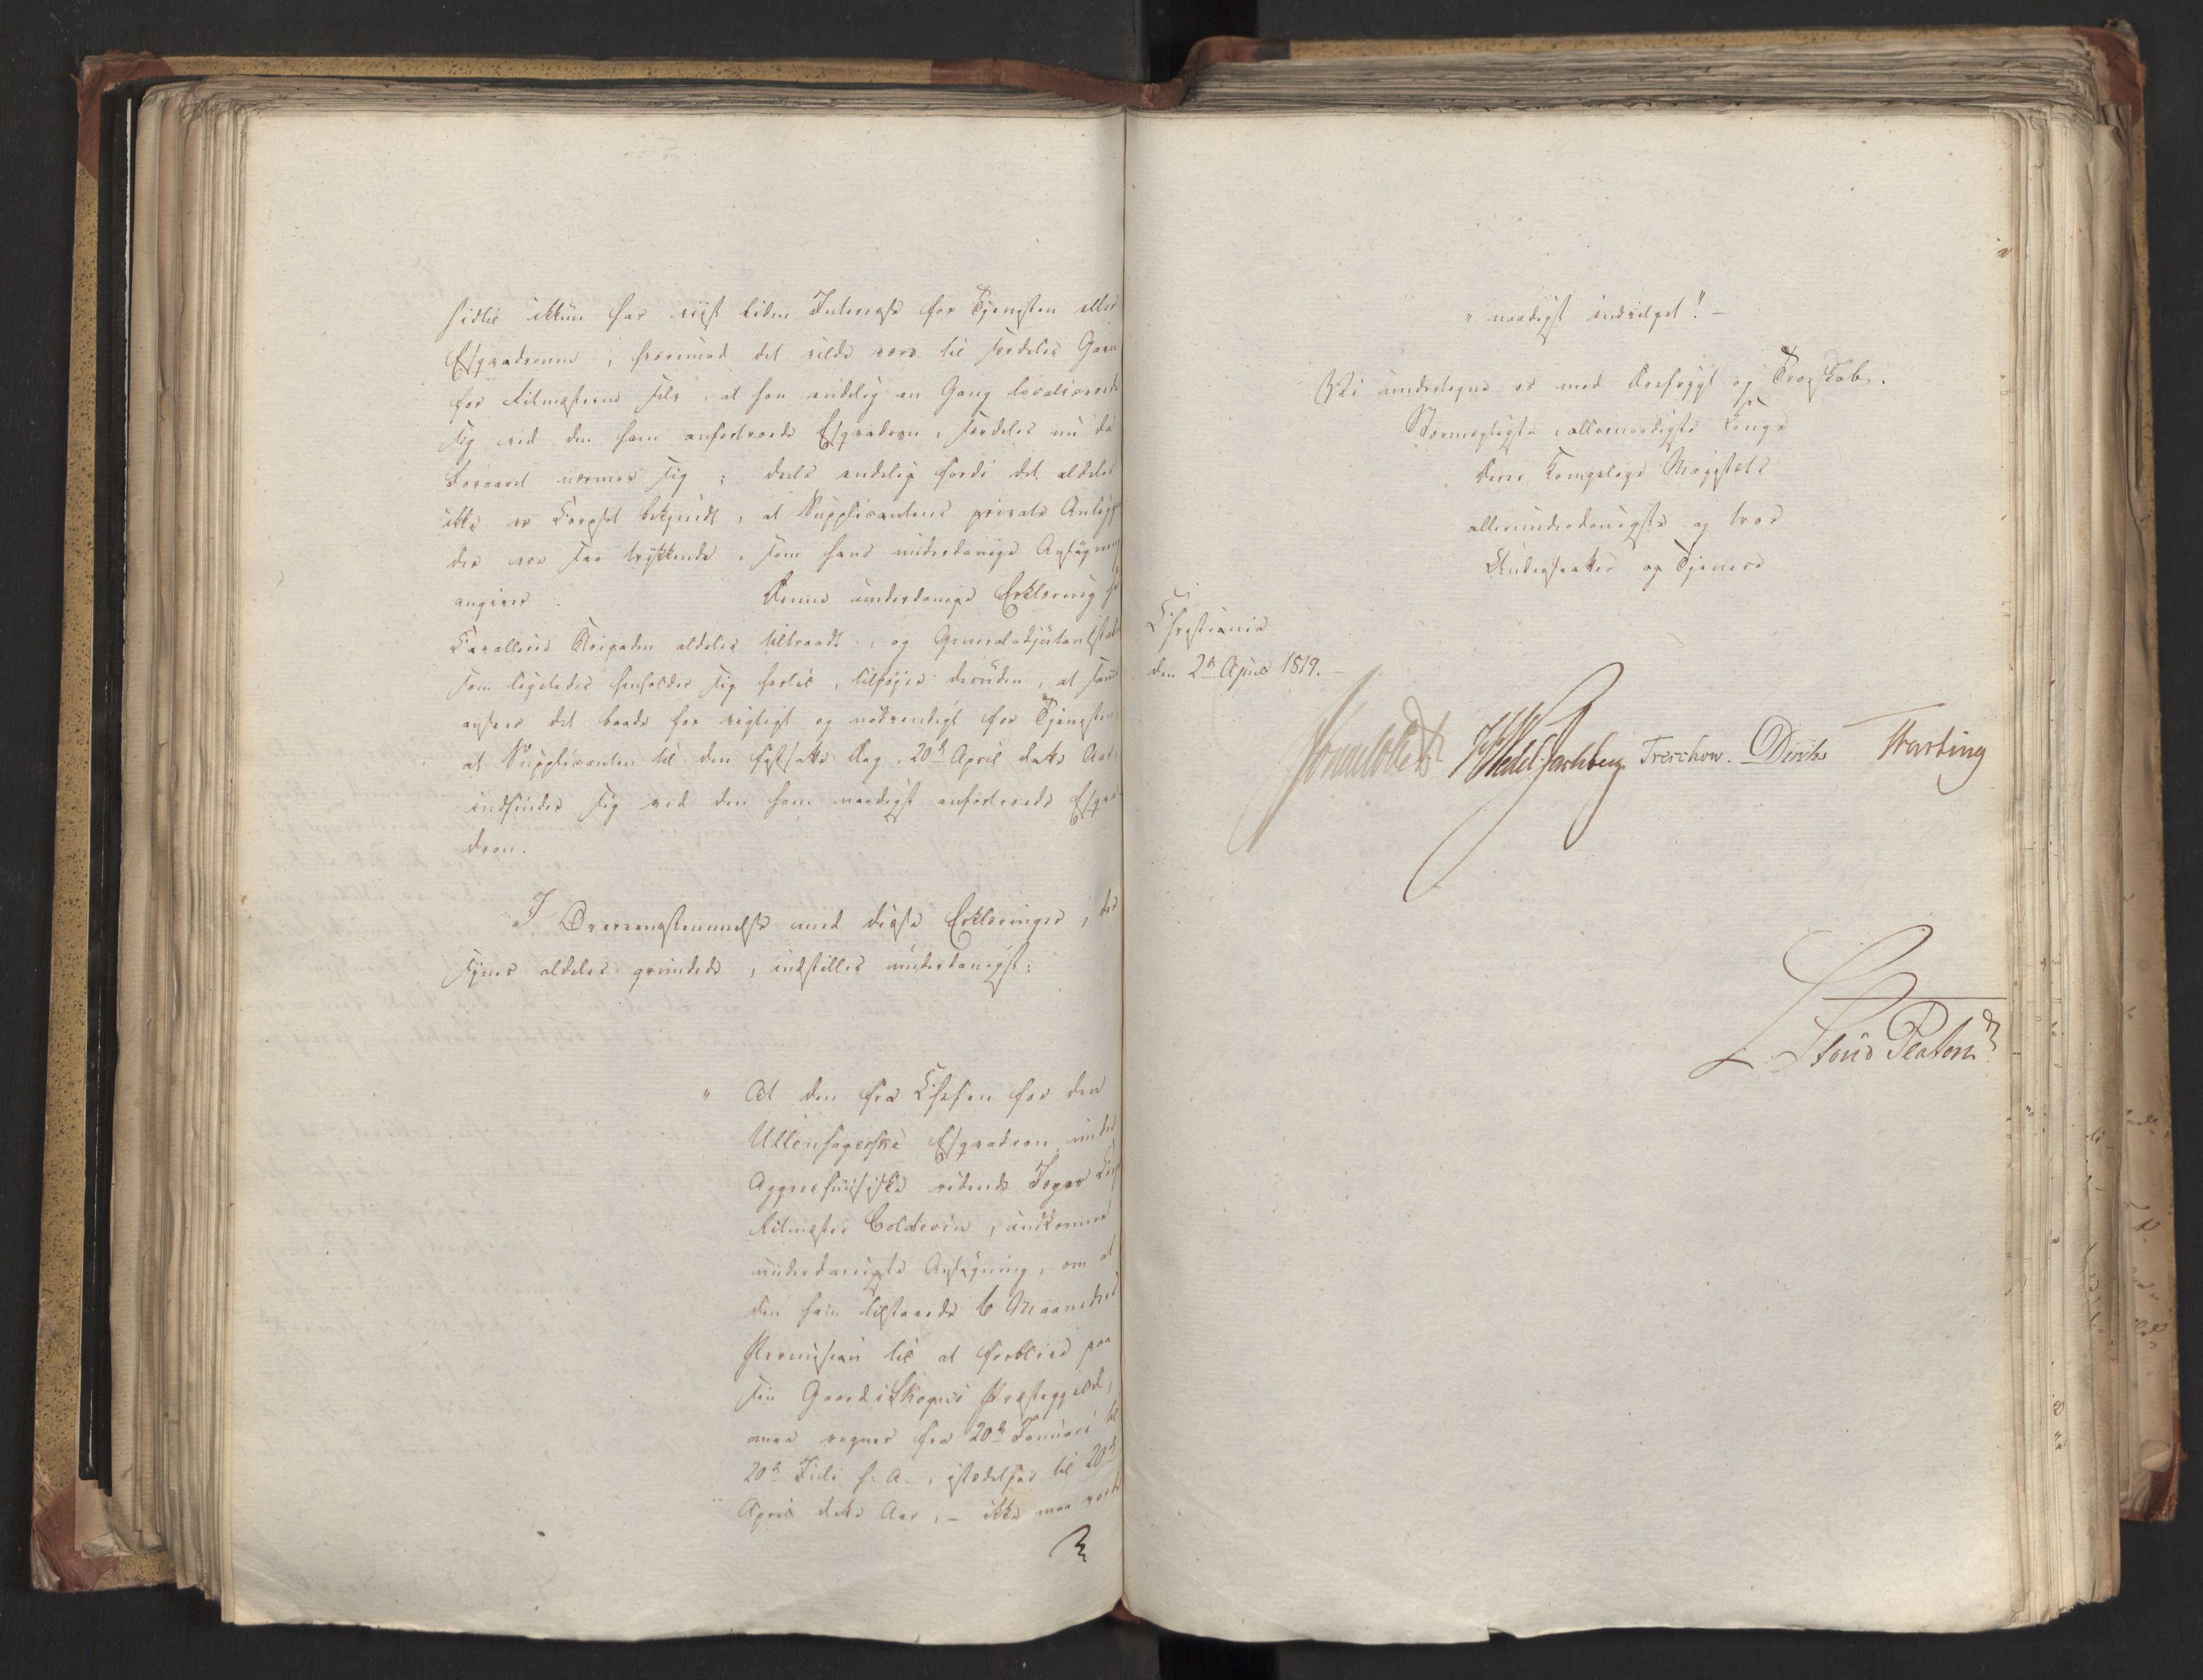 hidtil ikkun har viist liden Interesse for Tjenesten eller
Esqvadronen; hvorimod det vilde være til særdeles Gavn
for Ritmesteren selv, at han endelig en Gang localiserede
sig ved den ham anfortroede Esqvadron, særdeles nu da
Foraaret nærmer sig; deels endelig fordi det aldeles
ikke er Corpset bekjendt, at Supplicantens private Anliggen
der ere saa trykkende, som hans underdanige Ansøgning
angiver. Denne underdanige Erklæring har
Cavallerie Brigaden aldeles tiltraadt, og Generaladjutantstaben
som ligeledes henholder sig hertil, tilføjer desuden, at samme
ansees det baade for vigtigt og nødvendigt for Tjenesten
at Supplicanten til den fastsatte Dag, 20de April dette Aar,
indfinder sig ved den ham naadigst anfortroede Esqva-
dron.
I Overeensstemmelse med disse Erklæringer, der
synes aldeles grundede, indstilles underdanigst:
" At den fra Chefen for den
Ullensagerske Esqvadron under
Aggershuusiske ridende Jæger Corps
Ritmester Coldevin, indkomne
underdanigste Ansøgning, om at
den ham tilstaaede 6 Maaneders
Permission til at forblive paa
sin Gaard i Skogns Præstegjeld,
maa regnes fra 20de Januari til
20de Juli h: a:, istedetfor til 20de
April dette Aar, – ikke maa vorde
" naadigst indvilget." –
Vi undertegne os med Ærefrygt og Troskab.
Stormægtigste, allernaadigste Konge
Deres Kongelige Majestæts
allerunderdanigste og troe
Undersaatter og Tjenere
Christiania
den 2de April 1819. –
Sommerhielm HWedel Jarlsberg Treschow. Diriks Hasting
L. Stoud Platou